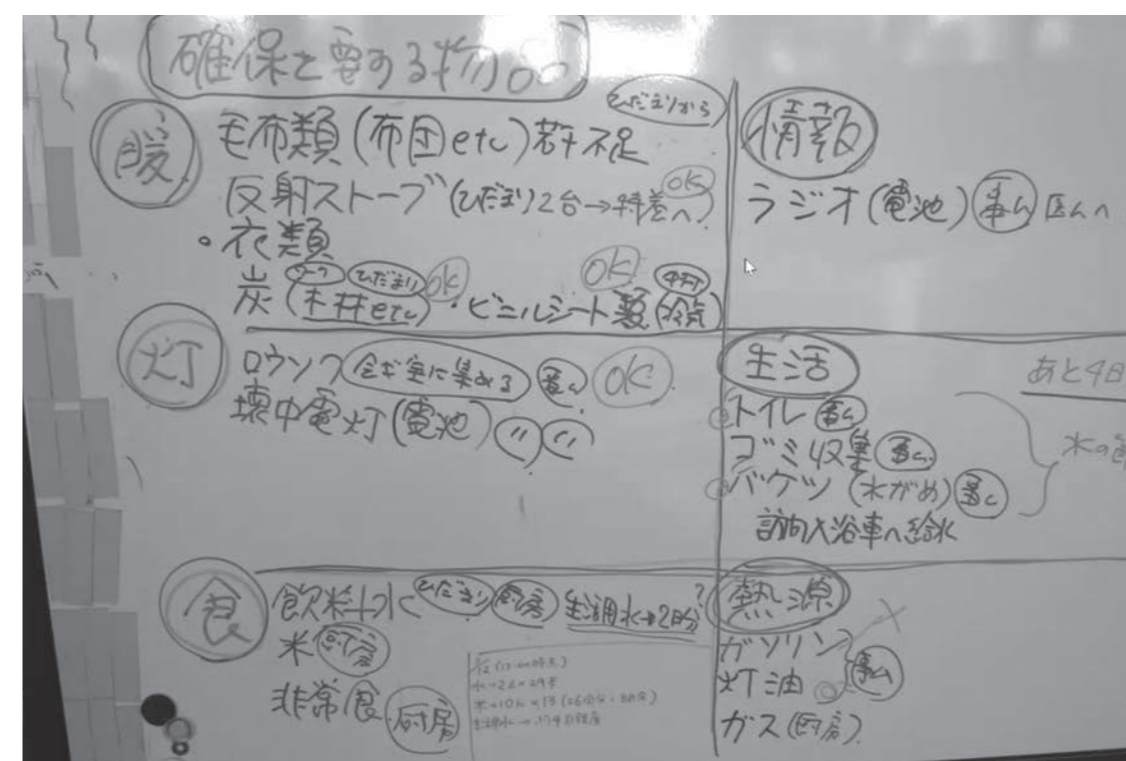 確保を要する物品
暖
ひだまりから
毛布類(布団etc)若干不足
反射ストーブ(ひだまり2台→特養へ) OK
・衣類
炭(木井etc) ひだまり OK ・ビニルシート類 OK
灯
ロウソク 会議室に集める 事ム OK
壊中電灯(電池) 〃 〃
食
飲料水 ひだまり 厨房 生活用水→2日分?
米 厨房
非常食 厨房
情報
ラジオ(電池) 事ム 医ムへ
生活
あと4日
トイレ 事ム
ゴミ収集 事ム
バケツ(水がめ) 事ム
水の
訪問入浴車へ給水
熱源
ガソリン
灯油 事ム
ガス(厨房)